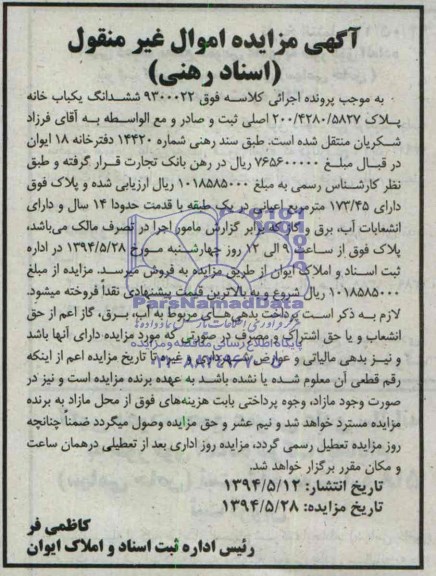 آگهی مزایده اموال غیر منقول
(اسناد رهنی)
به موجب پرونده اجرائی کلاسه فوق ۹۳۰۰۰۲۲ ششدانگ یکباب خانه
پلاک ۲۰۰/۴۲۸۰/۵۸۲۷ اصلی ثبت و صادر و مع الواسطه به آقای فرزاد
شکریان منتقل شده است. طبق سند رهنی شماره ۱۴۴۲۰ دفترخانه ۱۸ ایوان
در قبال مبلغ ۷۶۵۶۰۰۰۰۰ ریال در رهن بانک تجارت قرار گرفته و طبق
نظر کارشناس رسمی به مبلغ ۱۰۱۸۵۸۵۰۰۰ ریال ارزیابی شده و پلاک فوق
دارای ۱۷۳/۴۵ مترمربع اعیانی در یک طبقه با قدمت حدودا ۱۴ سال و دارای
انشعابات آب، برق و گاز که برابر گزارش مامور اجرا در تصرف مالک می‌باشد،
پلاک فوق از ساعت ۹ الی ۱۲ روز چهارشنبه مورخ ۱۳۹۴/۵/۲۸ در اداره
ثبت اسناد و املاک ایوان از طریق مزایده به فروش میرسد. مزایده از مبلغ
۱۰۱۸۵۸۵۰۰۰ ریال شروع و به بالاترین قیمت پیشنهادی نقداً فروخته میشود.
لازم به ذکر است پرداخت بدهی‌های مربوط به آب، برق، گاز اعم از حق
انشعاب و یا حق اشتراک و مصرف در صورتی که مورد مزایده دارای آنها باشد
و نیز بدهی مالیاتی و عوارض شهرداری و غیره تا تاریخ مزایده اعم از اینکه
رقم قطعی آن معلوم شده یا نشده باشد به عهده برنده مزایده است و نیز در
صورت وجود مازاد، وجوه پرداختی بابت هزینه‌های فوق از محل مازاد به برنده
مزایده مسترد خواهد شد و نیم عشر و حق مزایده وصول میگردد ضمناً چنانچه
روز مزایده تعطیل رسمی گردد، مزایده روز اداری بعد از تعطیلی درهمان ساعت
و مکان مقرر برگزار خواهد شد.
تاریخ انتشار: ۱۳۹۴/۵/۱۲
تاریخ مزایده: ۱۳۹۴/۵/۲۸
کاظمی فر
رئیس اداره ثبت اسناد و املاک ایوان
ParsNamadData
پایگاه اطلاع رسانی مناقصه و مزایده